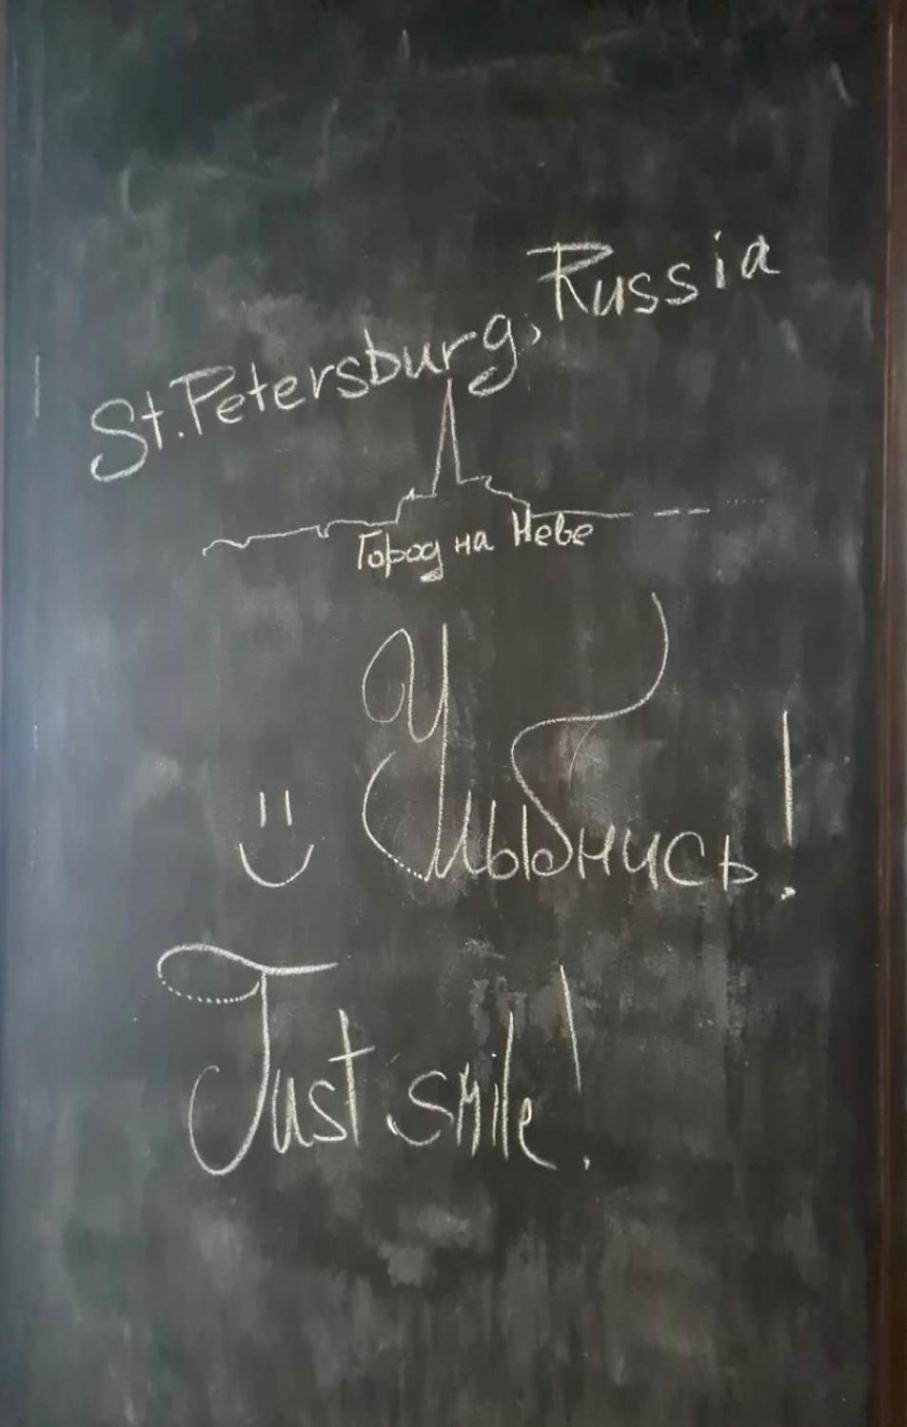 St. Petersburg, Russia
Город на Неве
Улыбнись!
Just smile!